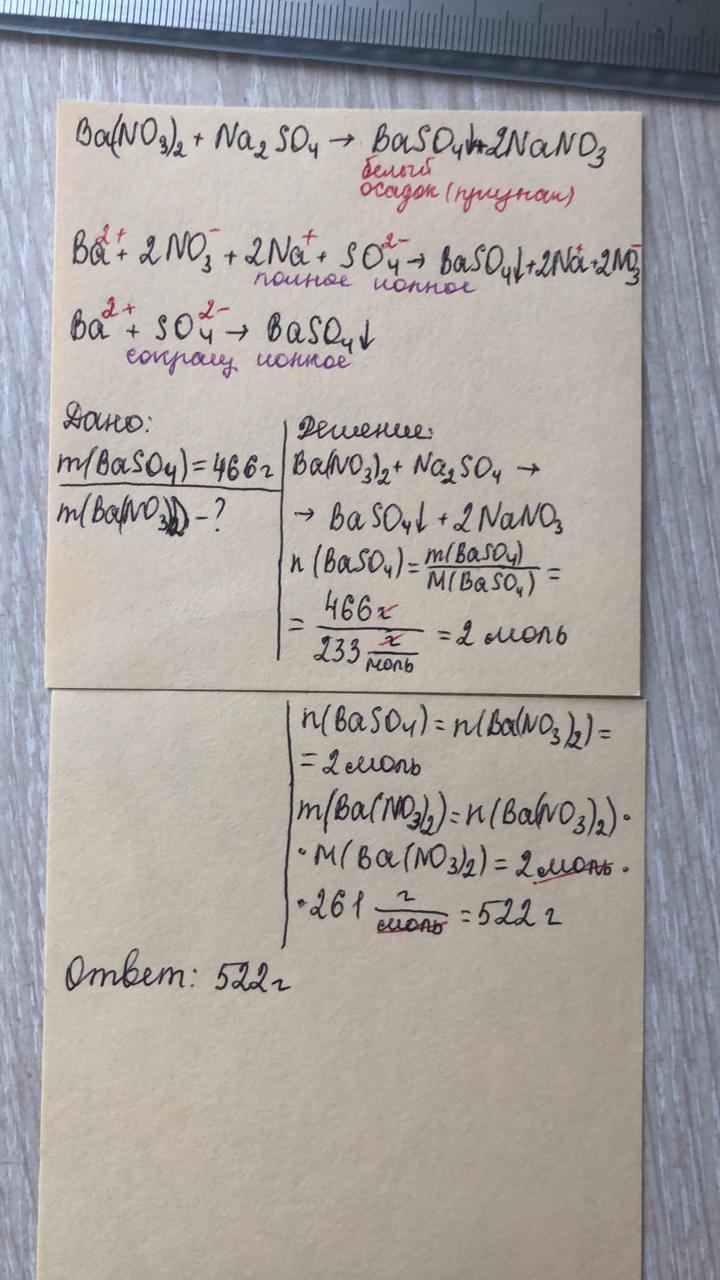 Ba(NO₃)₂ + Na₂SO₄ → BaSO₄↓+2NaNO₃
белый
осадок (признак)
Ba²⁺ + 2NO₃⁻ + 2Na⁺ + SO₄²⁻ → BaSO₄↓+2Na⁺+2NO₃⁻
полное ионное
Ba²⁺ + SO₄²⁻ → BaSO₄↓
сокращ ионное
Дано:
m(BaSO₄)=466г
m(Ba(NO₃)₂) - ?
Решение:
Ba(NO₃)₂+ Na₂SO₄ →
→ BaSO₄↓ + 2NaNO₃
n(BaSO₄)= m(BaSO₄)/M(BaSO₄) =
= 466г/233 г/моль = 2 моль
n(BaSO₄)= n(Ba(NO₃)₂)=
= 2 моль
m(Ba(NO₃)₂)= n(Ba(NO₃)₂)·
·M(Ba(NO₃)₂)= 2 моль ·
·261 г/моль = 522 г
Ответ: 522г